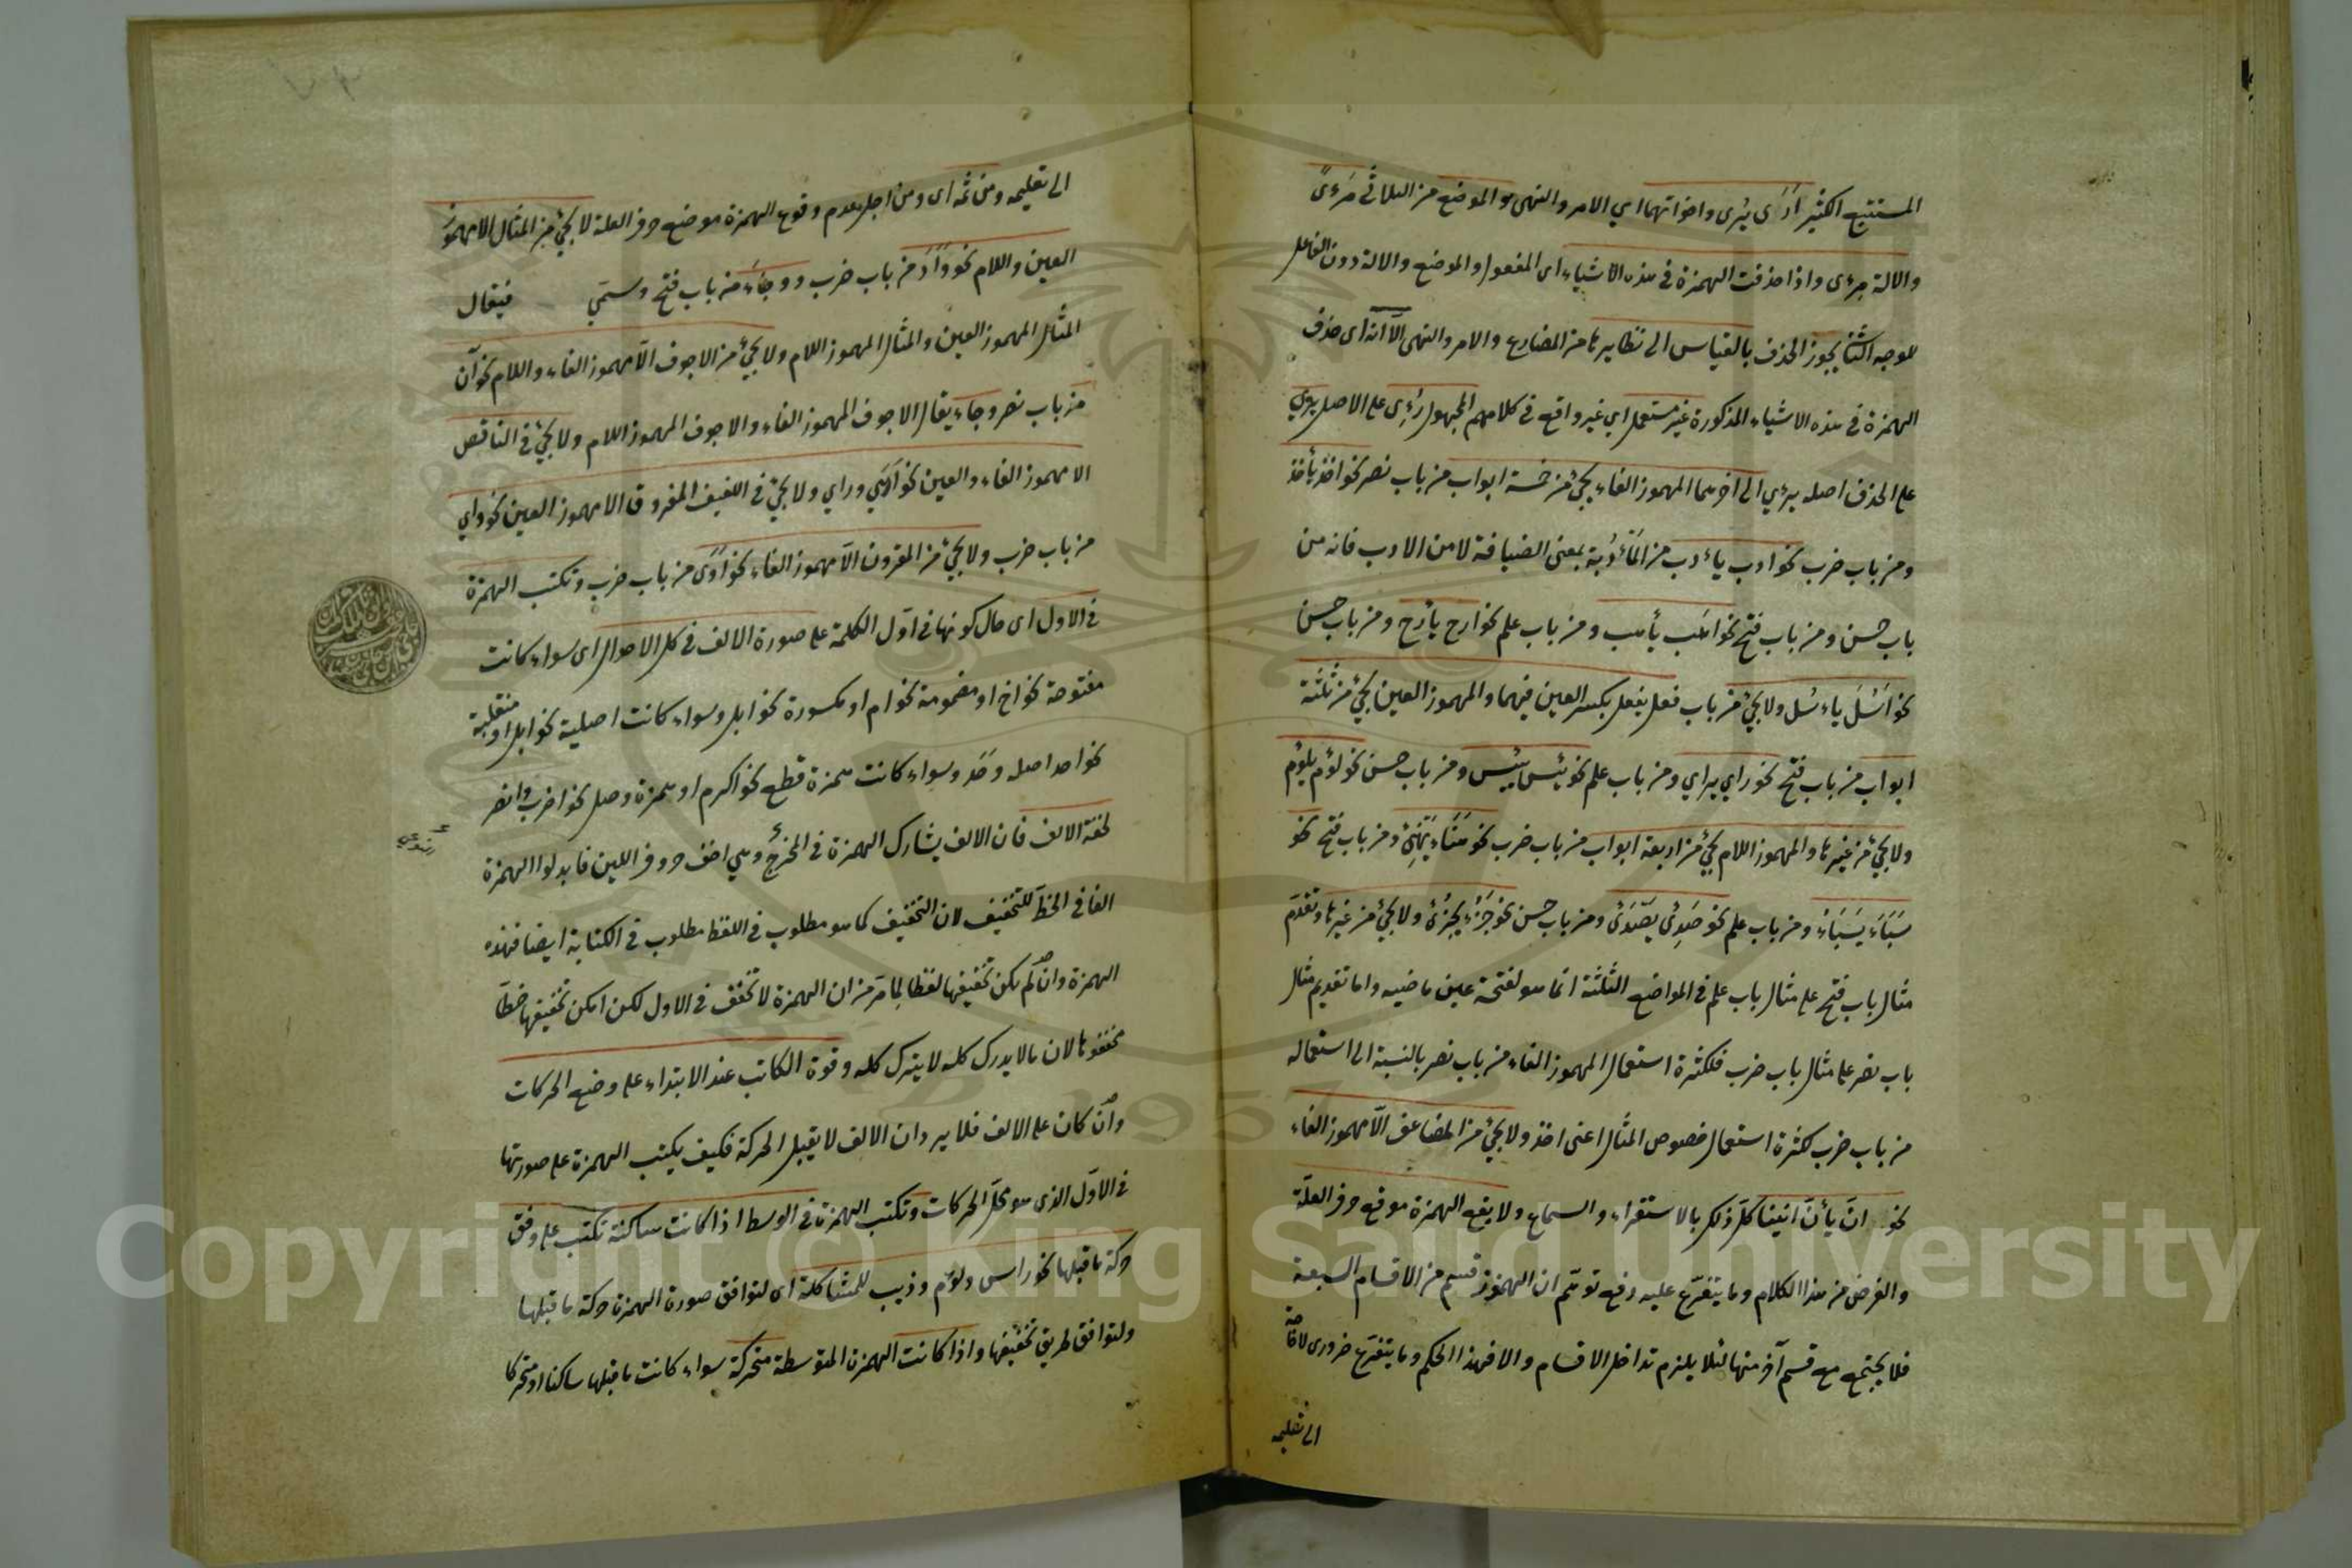 المستتبع الكثير ارَى يُرى واخواتهما اي الامر والنهى والموضع من الثلاثى مَرءىً
والالة مِرءى واذا حذفت الهمزة فى هذه الاشياء اى المفعول والموضع والالة دون الفاعل
للوجه الثانى يجوز الحذف بالقياس الى نظايرها من المضارع والامر والنهى الّا انّه اى حذف
الهمزة فى هذه الاشياء المذكورة غير مستعمل اي غير واقع فى كلامهم المجهول رُءِى على الاصل يرءي
على الحذف اصله يرءي الى اخرهما المهموز الفاء يجئ من خمسة ابواب من باب نصر نحو اخذ يأخذ
ومن باب ضرب نحو ادب يأدب من المَأدُبة بمعنى الضيافة لا من الادب فانه من
باب حسن ومن باب فتح نحو اهَب يأهب ومن باب علم نحو ارج يأرج ومن باب حسن
نحو اَسُلَ ياءسُل ولا يجئ من باب فعل يفعل بكسر العين فيهما والمهموز العين يجئ من ثلثة
ابواب من باب فتح نحو راي يراي ومن باب علم نحو يئس ييئس ومن باب حسن نحو لؤم يلؤم
ولا يجئ من غيرها والمهموز اللام يجئ من اربعة ابواب من باب ضرب نحو هَنَاء يَهْنِئ ومن باب فتح نحو
سَبَاءَ يَسْبَاءُ ومن باب علم نحو صَدِئ يَصْدَئ ومن باب حسن نحو جَزُءَ يجْزُئ ولا يجئ من غيرها وتقدّم
مثال باب فتح على مثال باب علم فى المواضع الثلثة انما هو لفتحة عين ماضيه واما تقديم مثال
باب نصر على مثال باب ضرب فلكثرة استعمال المهموز الفاء من باب نصر بالنسبة الى استعماله
من باب ضرب لكثرة استعمال خصوص المثال اعنى اخذ ولا يجئ من المضاعف الّا مهموز الفاء
نحو انّ يأنّ انينا كلّ ذلك بالاستقراء والسماع ولا يقع الهمزة موقع حرف العلّة
والغرض من هذا الكلام وما يتفرّع عليه دفع توهّم ان المهموز قسم من الاقسام السبعة
فلا يجتمع مع قسم آخر منها لئلا يلزم تداخل الاقسام والا فهذا الحكم وما يتفرّع ضرورى لا حاجة
الى تعليمه
الى تعليمه ومن ثمّه اى ومن اجل عدم وقوع الهمزة موضع حرف العلة لا يجئ من المثال الا مهموز
العين واللام نحو وَأَدَ من باب ضرب ووجأَء من باب فتح وسمّي فيقال
المثال المهموز العين والمثال المهموز اللام ولا يجئ من الاجوف الّا مهموز الفاء واللام نحو آن
من باب نصر وجاء يقال الاجوف المهموز الفاء والاجوف المهموز اللام ولا يجئ فى الناقص
الا مهموز الفاء والعين نحو وراي ولا يجئ فى اللفيف المفروق الا مهموز العين نحو واي
من باب ضرب ولا يجئ من المقرون الّا مهموز الفاء نحو اَوَى من باب ضرب وتكتب الهمزة
فى الاول اى حال كونها فى اوّل الكلمة على صورة الالف فى كل الاحوال اى سواء كانت
مفتوحة نحو اخ او مضمومة نحو ام او مكسورة نحو ابل وسواء كانت اصلية نحو ابل او منقلبة
نحو احد اصله وَحَد وسواء كانت همزة قطع نحو اكرم او همزة وصل نحو اضرب وانصر
لخفّة الالف فان الالف يشارك الهمزة فى المخرج وهى اخف حروف اللين فابدلوا الهمزة
الفا فى الخطّ للتخفيف لان التخفيف كما هو مطلوب فى اللفظ مطلوب فى الكتابة ايضا فهذه
الهمزة وان لم يكن تخفيفها لفظا لِما مرّ من ان الهمزة لا تخفف فى الاول لكن امكن تخفيفها خطّا
مخففوها لان ما لا يدرك كله لا يترك كله وقوة الكاتب عند الابتداء على وضع الحركات
وان كان على الالف فلا يرد ان الالف لا يقبل الحركة فكيف يكتب الهمزة على صورتها
فى الاوّل الذى هو محلّ الحركات وتكتب الهمزة فى الوسط اذا كانت ساكنة تكتب على وفق
حركة ما قبلها نحو راس ولؤم وذيب للمشاكلة اى لتوافق صورة الهمزة حركة ما قبلها
ولتوافق طريق تخفيفها واذا كانت الهمزة المتوسطة متحركة سواء كانت ما قبلها ساكنا او متحركا
Copyright © King Saud University